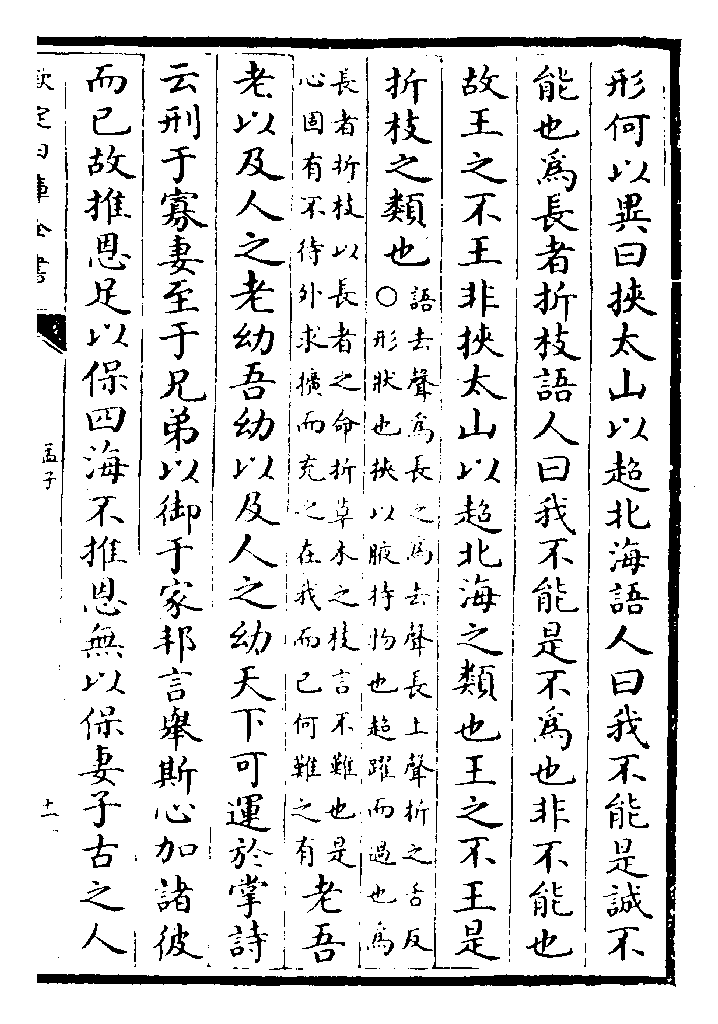 形何以異曰挾太山以超北海語人曰我不能是誠不
能也爲長者折枝語人曰我不能是不爲也非不能也
故王之不王非挾太山以超北海之類也王之不王是
折枝之類也○語去聲爲長之爲去聲長上聲折之舌反
形狀也挾以腋持物也超躍而過也爲
長者折枝以長者之命折草木之枝言不難也是
心固有不待外求擴而充之在我而已何難之有
老吾
老以及人之老幼吾幼以及人之幼天下可運於掌詩
云刑于寡妻至于兄弟以御于家邦言舉斯心加諸彼
而已故推恩足以保四海不推恩無以保妻子古之人
欽定四庫全書
孟子
十一